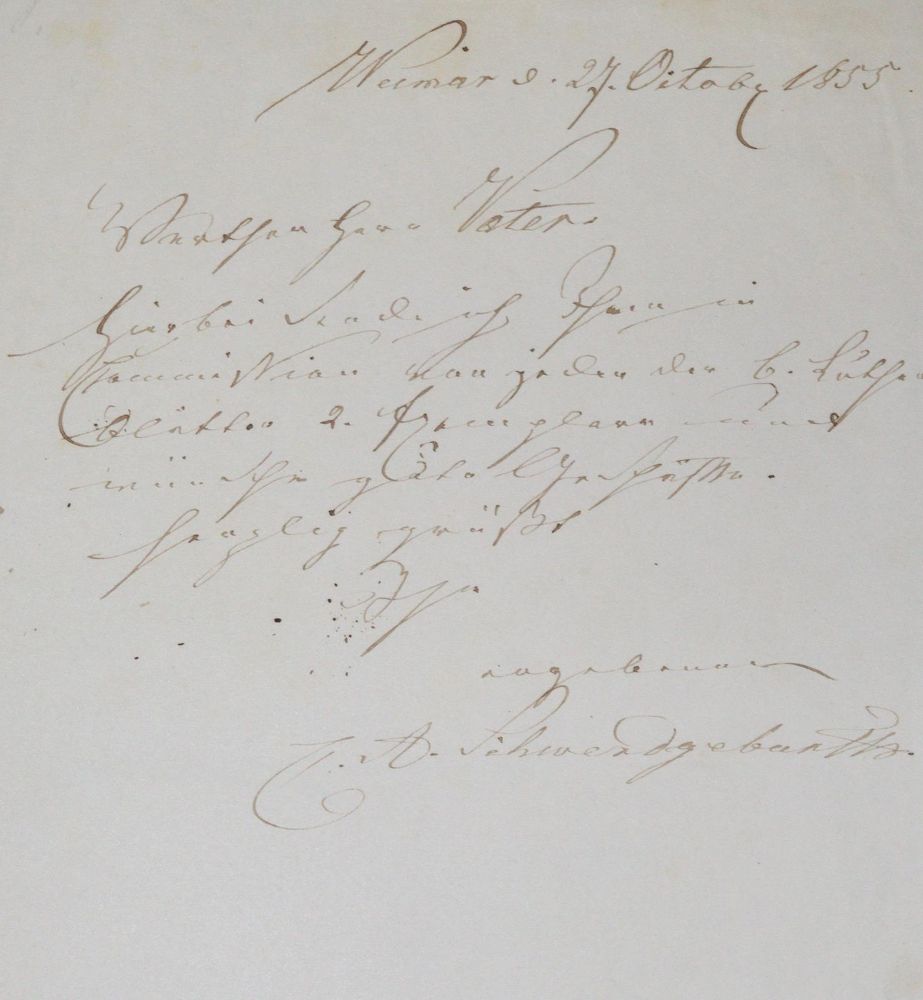 Weimar d. 27. Octobr 1855.
Werthen Herrn Vater.
Hierbei sende ich Ihnen in
Commission von jeden der 6. Luther
Blätter 2. Exemplare und
wünsche gute Geschäfte.
Herzlich grüßt
Ihr
ergebener
C. A. Schwerdgeburth.